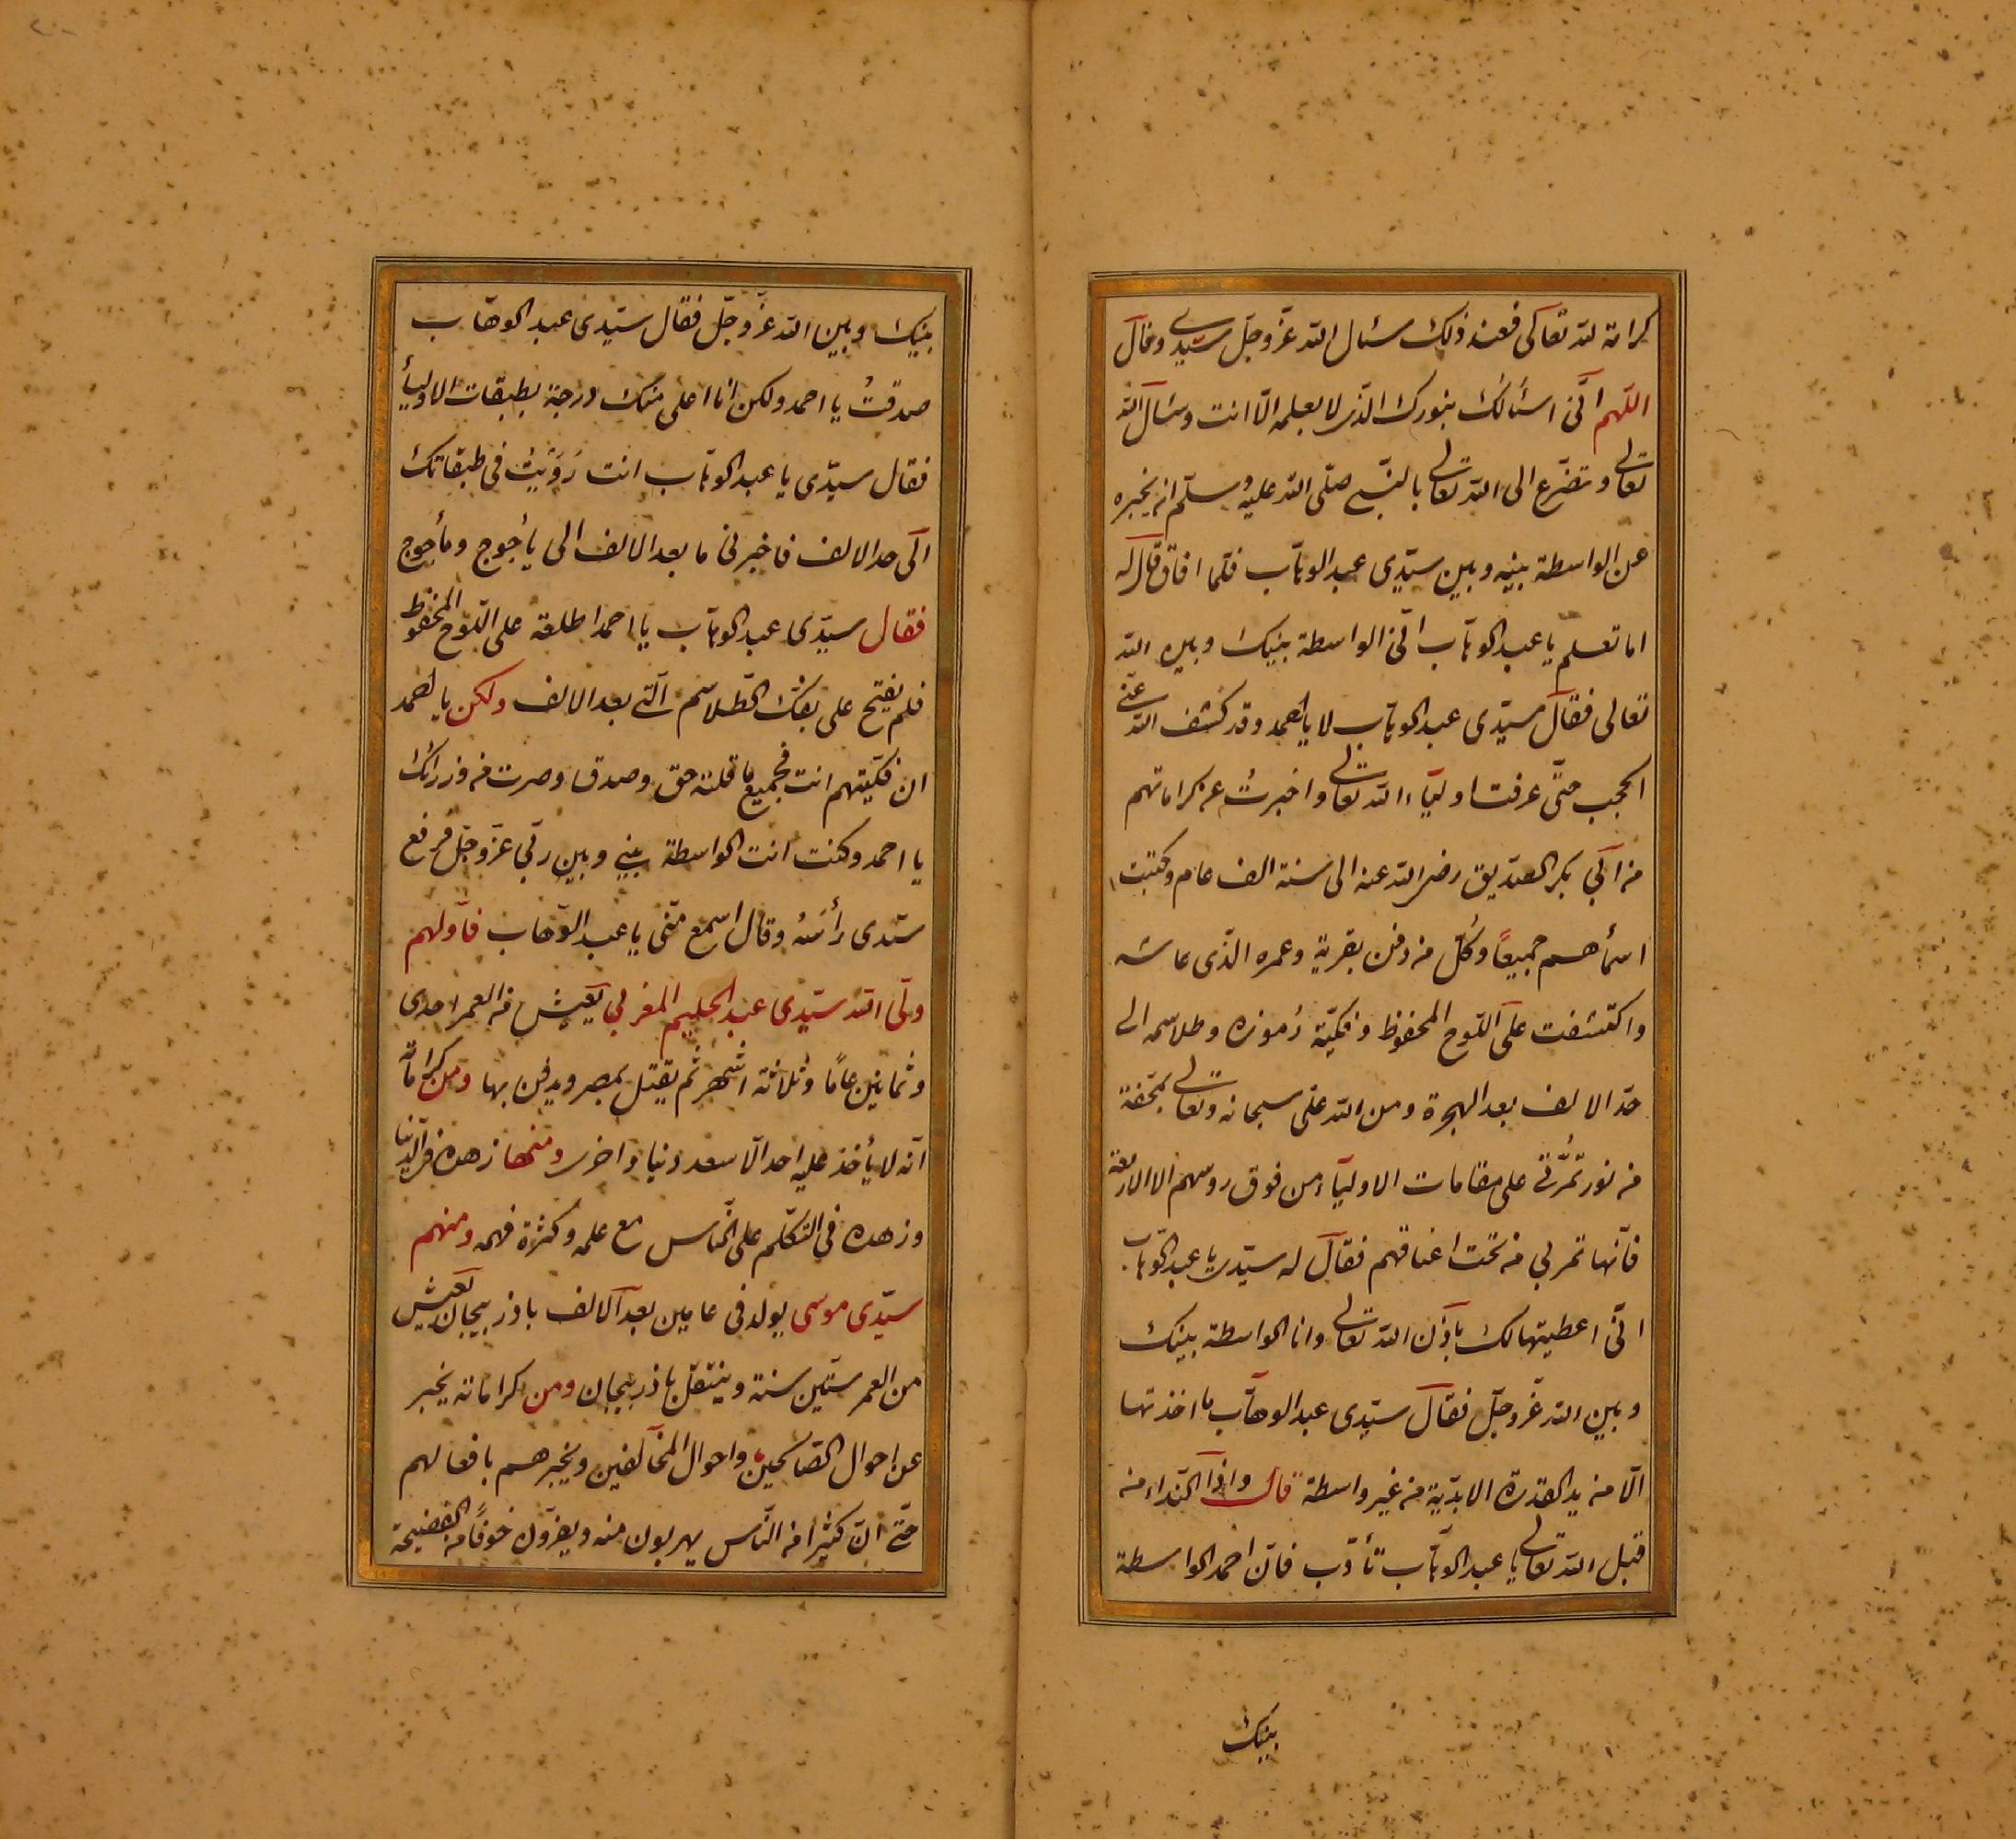 كرامة لله تعالى فعند ذلك سئال الله عزّ وجلّ سيّدي وقال
اللّهم انّى اسئالك بنورك الّذى لا يعلمه الّا انت وسئال الله
تعالى وتضرّع الى الله تعالى بالنّبى صلّى الله عليه وسلّم ان يخبره
عن الواسطة بينه وبين سيّدى عبد الوهّاب فلمّا افاق قال له
اما تعلم يا عبد الوهّاب انّى الواسطة بينك وبين الله
تعالى فقال سيّدى عبد الوهّاب لا يا احمد وقد كشف الله عنّى
الحجب حتّى عرفت اولياء الله تعالى واخبرت عن كراماتهم
من ابى بكر الصّديق رضى الله عنه الى سنة الف عام وكتبت
اسمأهم جميعًا وكُلّ من دفن بقرية وعمره الّذى عاشه
واكتشفت على اللّوح المحفوظ وفكّيّت رُموزه وطلاسمه الى
حدّ الالف بعد الهجرة ومن الله علىّ سبحانه وتعالى بتحفة
من نور تمُرّ بى على مقامات الاولياء من فوق روسهم الا الاربعة
فانّها تمر بى من تحت اعناقهم فقال له سيّدى يا عبد الوّهاب
انّى اعطيتها لك باذن الله تعالى وانا الواسطة بينك
وبين الله عزّ وجلّ فقال سيّدى عبد الوهّاب ما اخذتها
الّا من يد القدرة الابديّة من غير واسطة قال واذا النّداء من
قبل الله تعالى يا عبد الوهّاب تأدّب فانّ احمد الواسطة
بينك
بينك وبين الله عزّ وجلّ فقال سيّدى عبد الوهّاب
صدقتُ يا احمد ولكن انا اعلى منك درجة بطبقات الاوليأ
فقال سيدّى يا عبد الوهّاب انت رَوَيْتُ فى طبقاتك
الى حد الالف فاخبرنى ما بعد الالف الى يأجوج ومأجوج
فقال سيدّى عبد الوهّاب يا احمد اطلعت على اللّوح المحفوظ
فلم يفتح على بفكّ الطّلاسم الّتى بعد الالف ولكن يا احمد
ان فكّيّتهم انت فجميع ما قلته حق وصدق وصرت من وزرائك
يا احمد وكنت انت الواسطة بينى وبين ربّى عزّ وجلّ فرفع
سيّدى رأسَهُ وقال اسمع منّى يا عبد الوّهاب فأولهم
ولّى الله سيّدى عبد الحليم المغربى يعيش من العمر احدى
وثمانين عامًا وثلاثة اشهر ثم يقتل بمصر ويدفن بها ومن كراماته
انّه لا يأخذ عليه احد الّا سعد دنيا واخرى ومنها زهده فى الدّنيا
وزهده فى التّكلّم على النّاس مع علمه وكثرة فهمه ومنهم
سيّدى موسى يولد فى عامين بعد الالف باذربيجان يعيش
من العمر ستّين سنة وينتقل باذربيجان ومن كراماته يخبر
عن احوال الصّالحين واحوال المخالفين ويخبرهم بافعالهم
حتّى انّ كثيرًا من النّاس يهربون منه ويفرّون خوفًا من الفضيحة